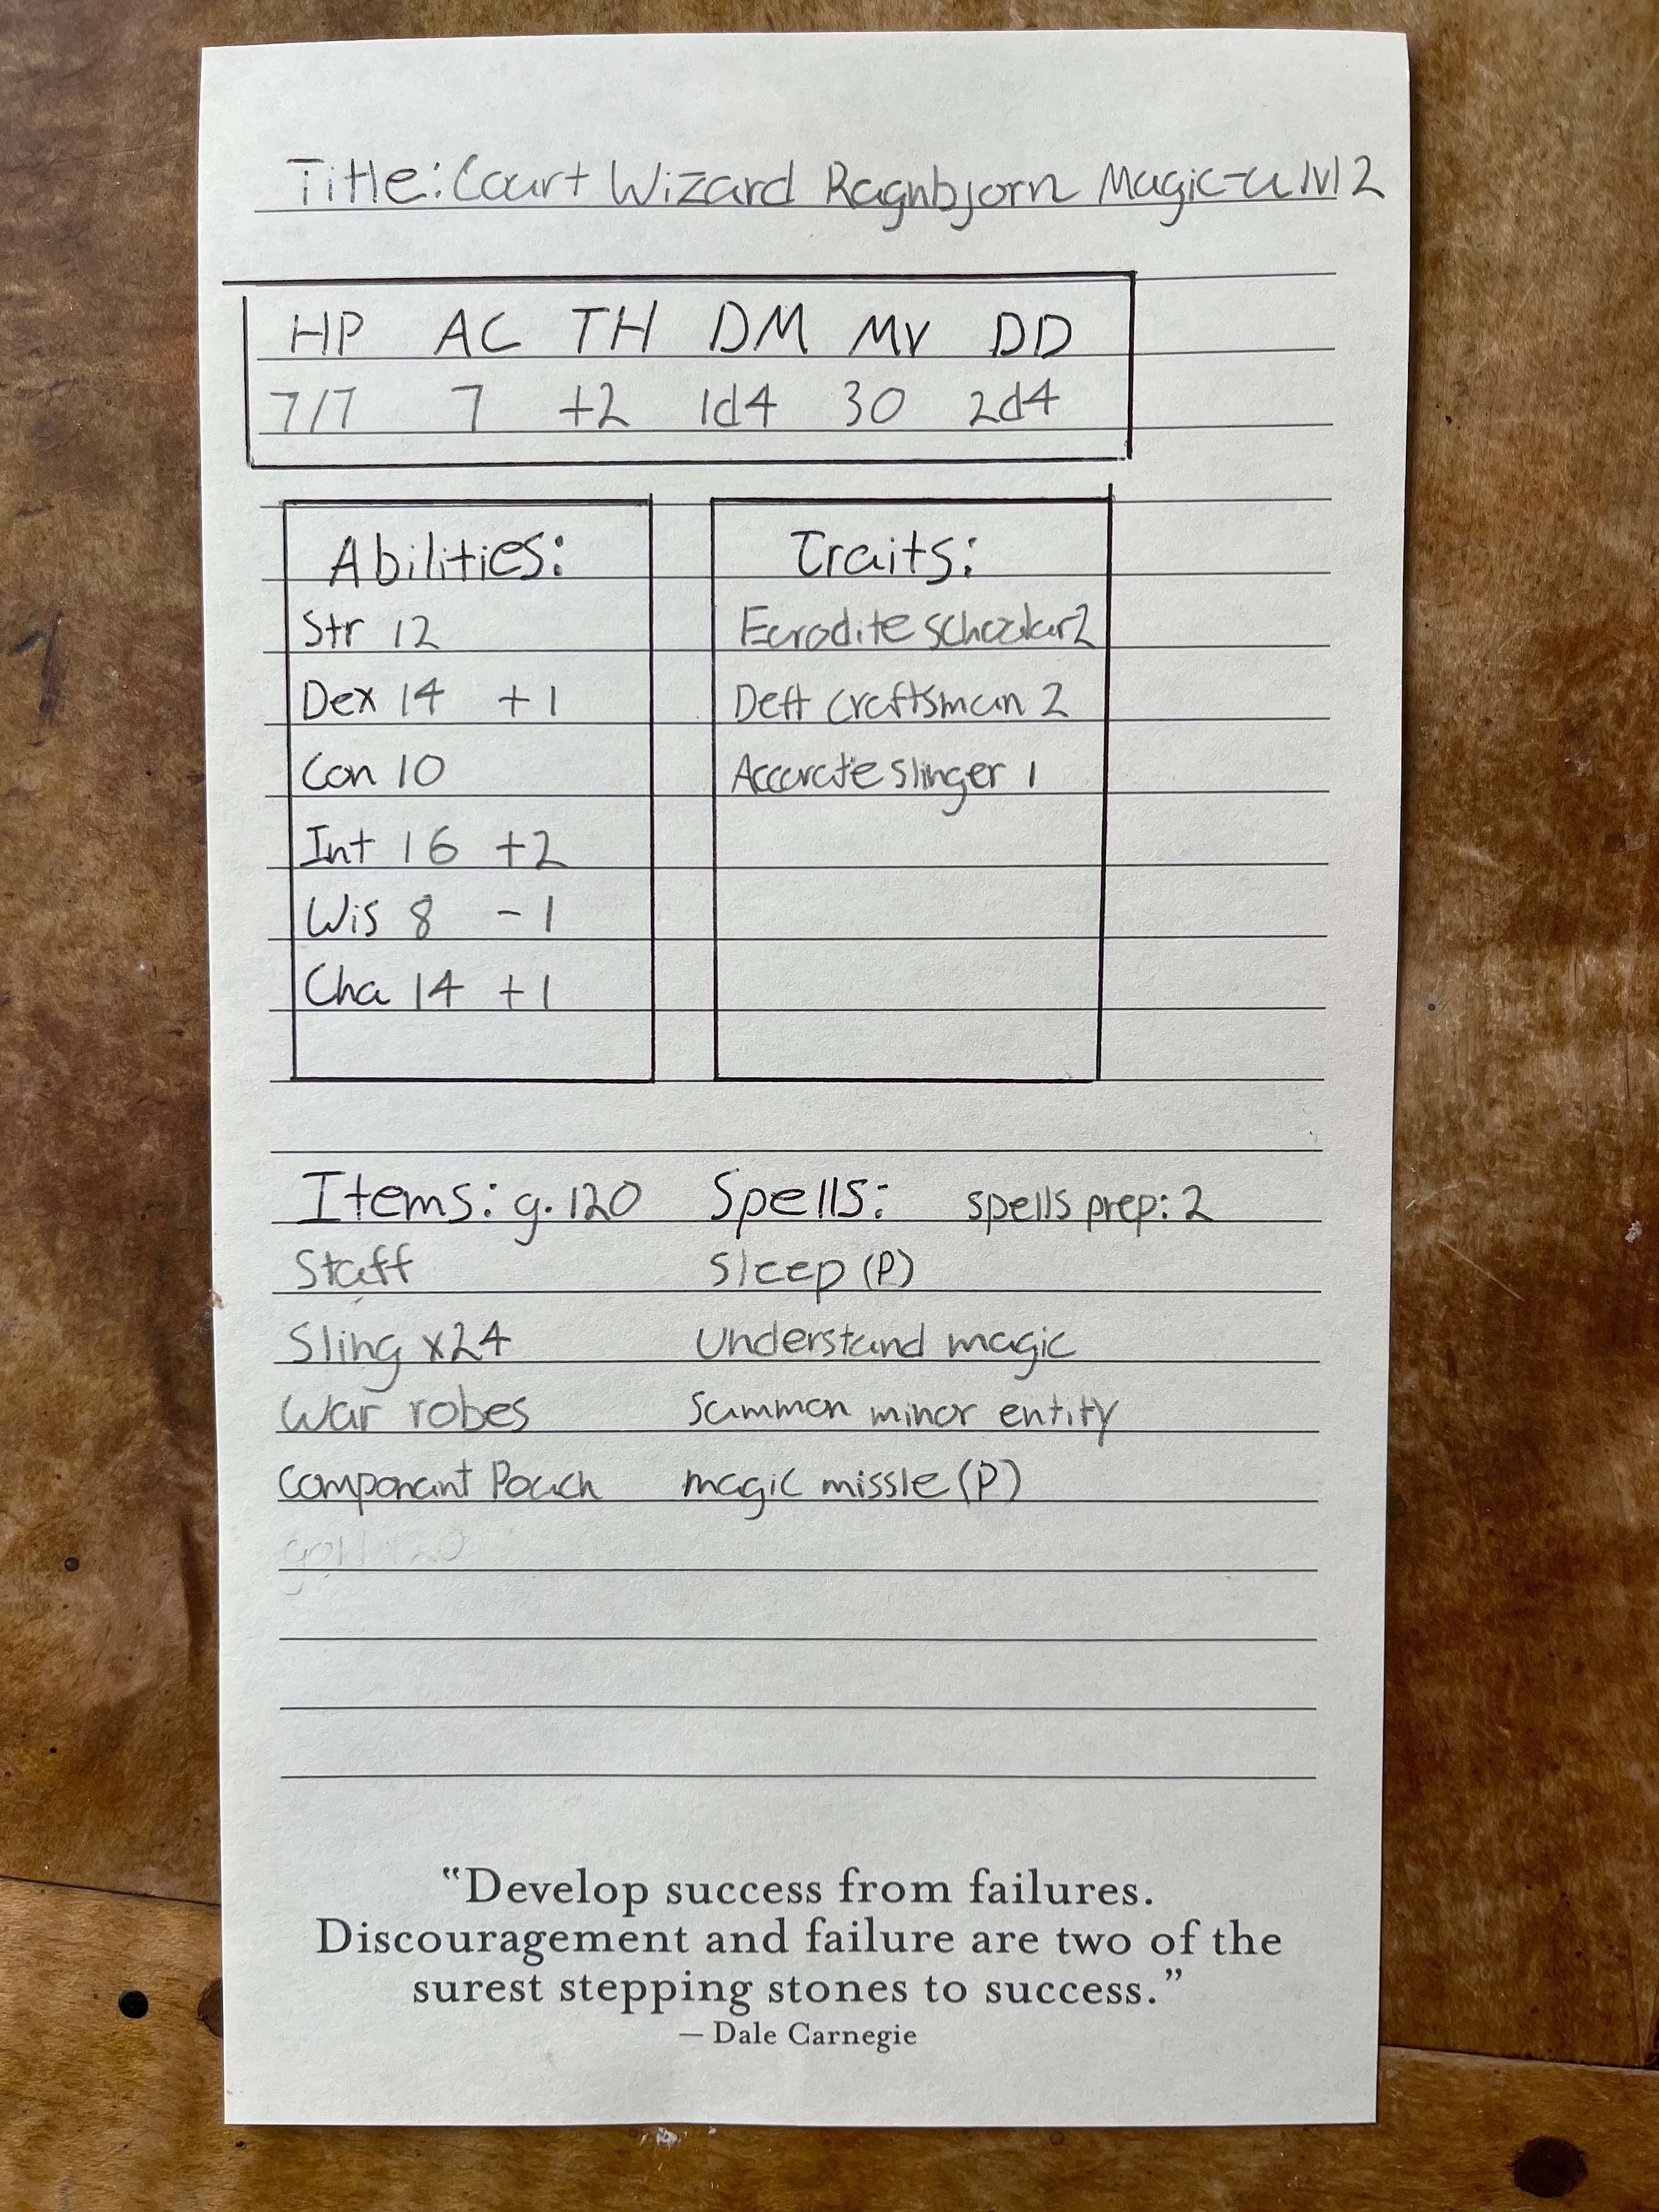 Title: Court Wizard Ragnbjorn Magic-u lvl 2
HP AC TH DM MV DD
7/7 7 +2 1d4 30 2d4
Abilities:
Str 12
Dex 14 +1
Con 10
Int 16 +2
Wis 8 -1
Cha 14 +1
Traits:
Eurodite schoolar 2
Deft craftsman 2
Accurate slinger 1
Items: g. 120
Staff
Sling x24
War robes
Componant Pouch
Spells: spells prep: 2
Sleep (P)
Understand magic
Summon minor entity
magic missle (P)
"Develop success from failures.
Discouragement and failure are two of the
surest stepping stones to success."
— Dale Carnegie